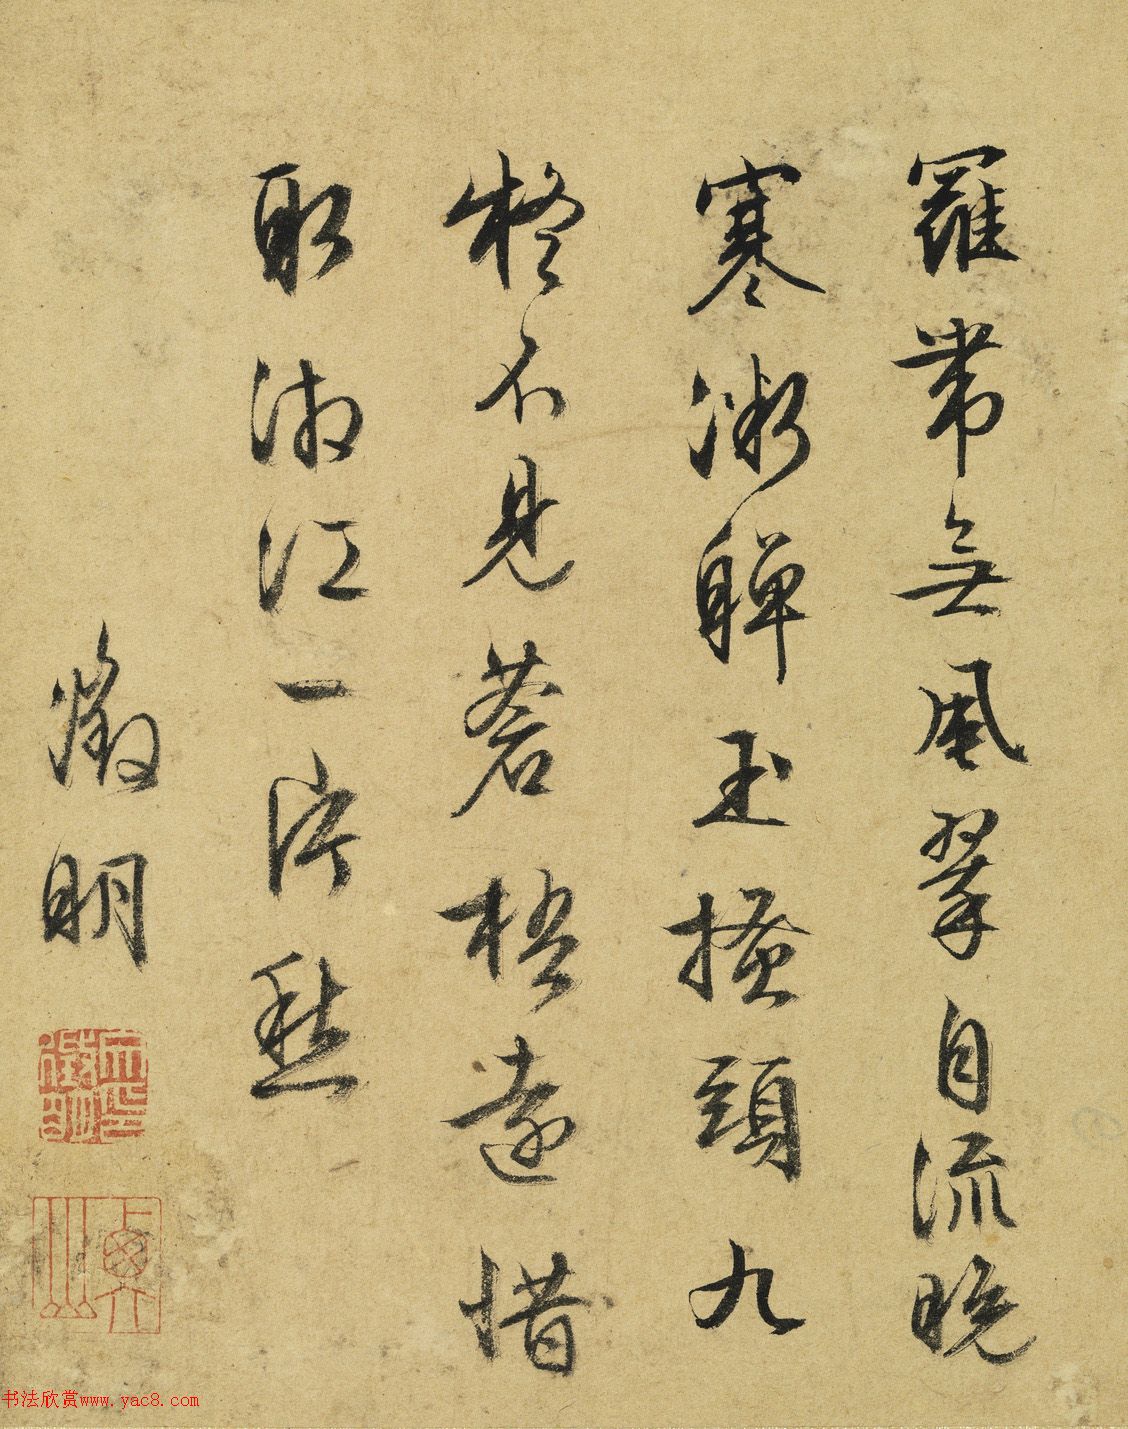 羅帶無風翠自流晚
寒微軃玉搔頭九
疑不見蒼梧遠惜
取湘江一片愁
徵明
书法欣赏www.yac8.com